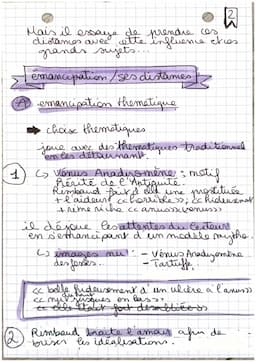 2
Mais il essaye de prendre ces
distances avec cette influence et ces
grands sujets...
émancipation / ses distances
A émancipation thématique
➡ choix thématiques
joue avec des thématiques traditionnel
en les détournant.
1 ↳ Vénus Anadyomène : motif
Récité de l'Antiquité.
Rimbaud fait d'elle une prostituée
+ laideur << horrible >>; << hideusement
+ rime riche << anus >> << venus >>
il déjoue les attentes du lecteur
en s'émancipant d'un modèle mythe.
↳ images nu : - Vénus Anadyomène
des fesses. - Tartuffe.
<< belle hideusement d'un ulcère à l'anus >>
<< nu jusques en bas >>
2 Rimbaud traite l'amour afin de
briser les idéalisations.